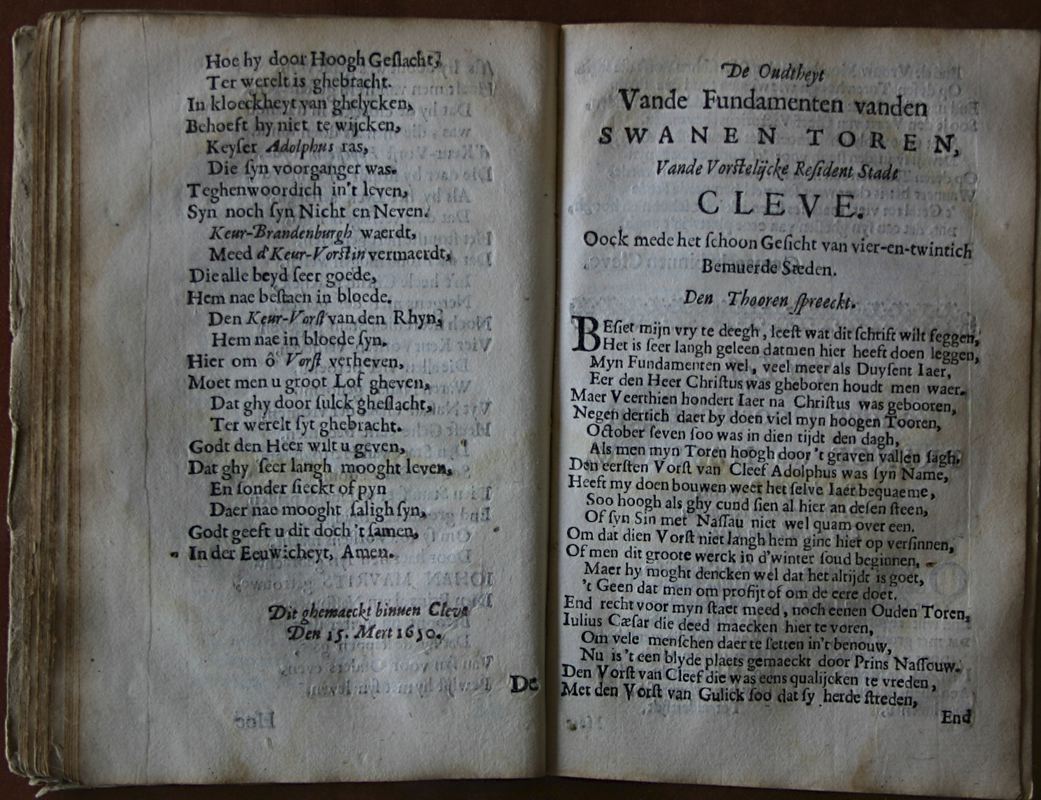 Hoe hy door Hoogh Geſlacht,
Ter werelt is ghebracht.
In kloeckheyt van ghelycken,
Behoeft hy niet te wijcken,
Keyſer Adolphus ras,
Die ſyn voorganger was.
Teghenwoordich in't leven,
Syn noch ſyn Nicht en Neven.
Keur-Brandenburgh waerdt,
Meed d'Keur-Vorſtin vermaerdt,
Die alle beyd ſeer goede,
Hem nae beſtaen in bloede.
Den Keur-Vorſt van den Rhyn,
Hem nae in bloede ſyn.
Hier om ô Vorſt verheven,
Moet men u groot Lof gheven,
Dat ghy door ſulck gheſlacht,
Ter werelt ſyt ghebracht.
Godt den Heer wilt u geven,
Dat ghy ſeer langh mooght leven,
En ſonder ſieckt of pyn
Daer nae mooght ſaligh ſyn,
Godt geeft u dit doch 't ſamen,
In der Eeuwicheyt, Amen.
Dit ghemaeckt binnen Cleve
Den 15. Mert 1650.
De
De Oudtheyt
Vande Fundamenten vanden
SWANEN TOREN,
Vande Vorſtelijcke Reſident Stadt
CLEVE.
Oock mede het ſchoon Geſicht van vier-en-twintich
Bemuerde Steden.
Den Thooren ſpreeckt.
BEſiet mijn vry te deegh, leeſt wat dit ſchrift wilt ſeggen,
Het is ſeer langh geleen datmen hier heeft doen leggen,
Myn Fundamenten wel, veel meer als Duyſent Iaer,
Eer den Heer Chriſtus was gheboren houdt men waer.
Maer Veerthien hondert Iaer na Chriſtus was gebooren,
Negen dertich daer by doen viel myn hoogen Tooren,
October ſeven ſoo was in dien tijdt den dagh,
Als men myn Toren hoogh door 't graven vallen ſagh.
Den eerſten Vorſt van Cleef Adolphus was ſyn Name,
Heeft my doen bouwen weer het ſelve Iaer bequaeme,
Soo hoogh als ghy cund ſien al hier an deſen ſteen,
Of ſyn Sin met Naſſau niet wel quam over een.
Om dat dien Vorſt niet langh hem ginc hier op verſinnen,
Of men dit groote werck in d'winter ſoud beginnen,
Maer hy moght dencken wel dat het altijdt is goet,
't Geen dat men om profijt of om de eere doet.
End recht voor myn ſtaet meed, noch eenen Ouden Toren,
Iulius Cæſar die deed maecken hier te voren,
Om vele menſchen daer te ſetten in't benouw,
Nu is 't een blyde plaets gemaeckt door Prins Naſſouw.
Den Vorſt van Cleef die was eens qualijcken te vreden,
Met den Vorſt van Gulick ſoo dat ſy herde ſtreden,
End